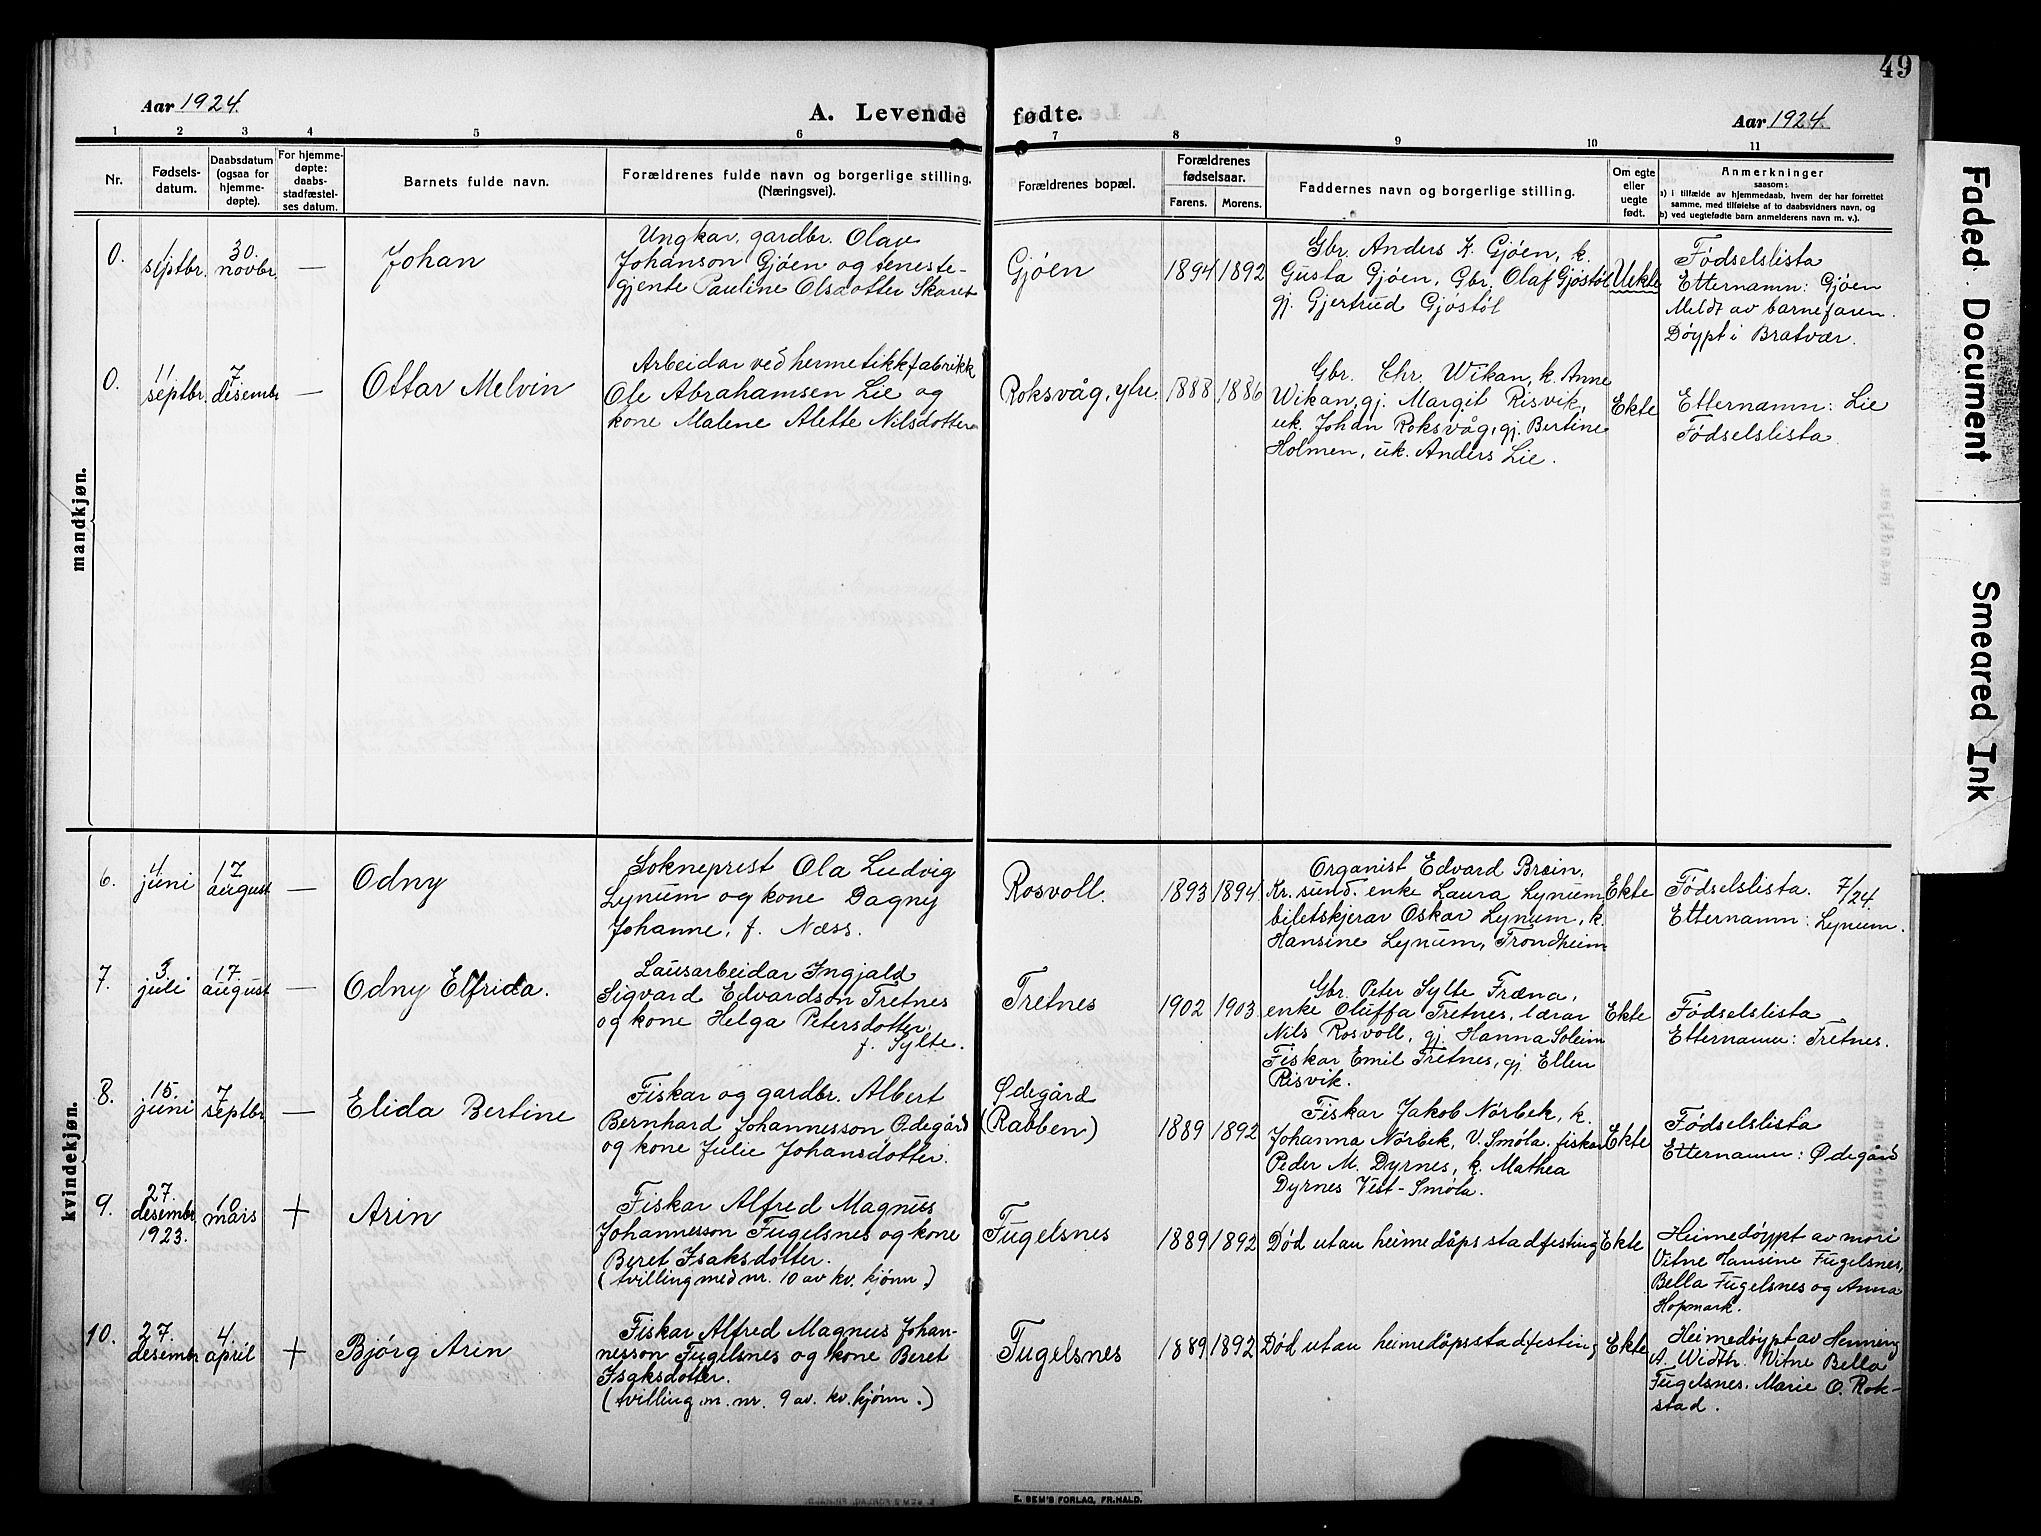 49
Aar 1924.
A. Levende fødte.
Aar 1924
1 2 3 4 5 6 7 8 9 10 11
Nr.
Fødsels-
datum.
Daabsdatum
(ogsaa for
hjemme-
døpte).
For hjemme-
døpte:
daabs-
stadfæstel-
ses datum.
Barnets fulde navn.
Forældrenes fulde navn og borgerlige stilling.
(Næringsvei).
Forældrenes bopæl.
Forældrenes
fødselsaar.
Farens. Morens.
Faddernes navn og borgerlige stilling.
Om egte
eller
uegte
født.
Anmerkninger
saasom:
a) i tilfælde av hjemmedaab, hvem der har forrettet
samme, med tilføielse af to daabsvidners navn, og
b) ved uegtefødte barn anmelderens navn m. v.).
mandkjøn.
0.
1
septbr.
30.
novbr.
—
Johan
Ungkar, gardbr. Olav
Johanson Gjøen og teneste-
gjente Pauline Olsdotter Skaret
Gjøen
1894 1892
Gbr. Anders K. Gjøen, k.
Gusta Gjøen, Gbr. Olaf Gjøstøl
gj. Gjertrud Gjøstøl
Uekte
Fødselslista
Etternamn: Gjøen
Meldt av barnefaren.
Døypt i Bratvær.
0.
11
septbr.
7
desembr
—
Ottar Melvin
Arbeidar ved hermetikkfabrikk
Ole Abrahamsen Lie og
kone Malene Alette Nilsdotter
Roksvåg, ytre.
1888 1886
Gbr. Chr. Wikan, k. Anne
Wikan, gj. Margit Risvik,
uk. Johan Roksvåg, gj. Bertine
Holmen, uk. Anders Lie.
Ekte
Etternamn: Lie
Fødselslista.
kvindekjøn.
6.
4
juni
17
august
—
Odny
Sokneprest Ola Ludvig
Lynum og kone Dagny
Johanne, f. Næss.
Rosvoll.
1893 1894
Organist Edvard Bræin,
Kr.sund. enke Laura Lynum
biletskjerar Oskar Lynum, k.
Hansine Lynum, Trondheim
Ekte
Fødselslista. 7/24.
Etternamn: Lynum.
7.
3
juli
17.
august
—
Odny Elfrida.
Lausarbeidar Ingjald
Sigvard Edvardson Tretnes
og kone Helga Petersdotter,
f. Sylte.
Tretnes
1902 1903.
Gbr. Peter Sylte Fræna,
enke Oluffa Tretnes, lærar
Nils Rosvoll, gj. Hanna Soleim
Fiskar Emil Tretnes, gj Ellen
Risvik.
Ekte
Fødselslista
Etternamn: Tretnes.
8.
15.
juni
7
septbr
—
Elida Bertine
Fiskar og gardbr. Albert
Bernhard Johannesson Ødegård
og kone Julie Johansdotter.
Ødegård
(Rabben)
1889 1892
Fiskar Jakob Nørbek, k.
Johanna Nørbek, V. Smøla. fiskar
Peder M. Dyrnes, k. Mathea
Dyrnes Vest-Smøla.
Ekte
Fødselslista
Etternamn: Ødegård
9.
27.
desembr
1923.
mars
+
Arin
Fiskar Alfred Magnus
Johannesson Fugelsnes og kone
Beret Isaksdotter.
(tvilling med nr. 10 av kv. kjønn.)
Fugelsnes
1889 1892
Død utan heimedåpsstadfesting
Ekte
Heimedøypt av mori
Vitne Hansine Fugelsnes,
Bella Fugelsnes og Anna
Hopmark.
10.
27.
desembr
4
april
+
Bjørg Arin
Fiskar Alfred Magnus Johan-
nesson Fugelsnes og kone Beret
Isaksdotter.
(tvilling m. nr. 9 av. kv. kjønn.)
Fugelsnes
1889 1892
Død utan heimedåpsstadfesting
Ekte
Heimedøypt av Henning
A. Width. Vitne Bella
Fugelsnes. Marie O. Rok-
stad.
E. SEM'S FORLAG, FR.HALD.
Faded Document
Smeared Ink